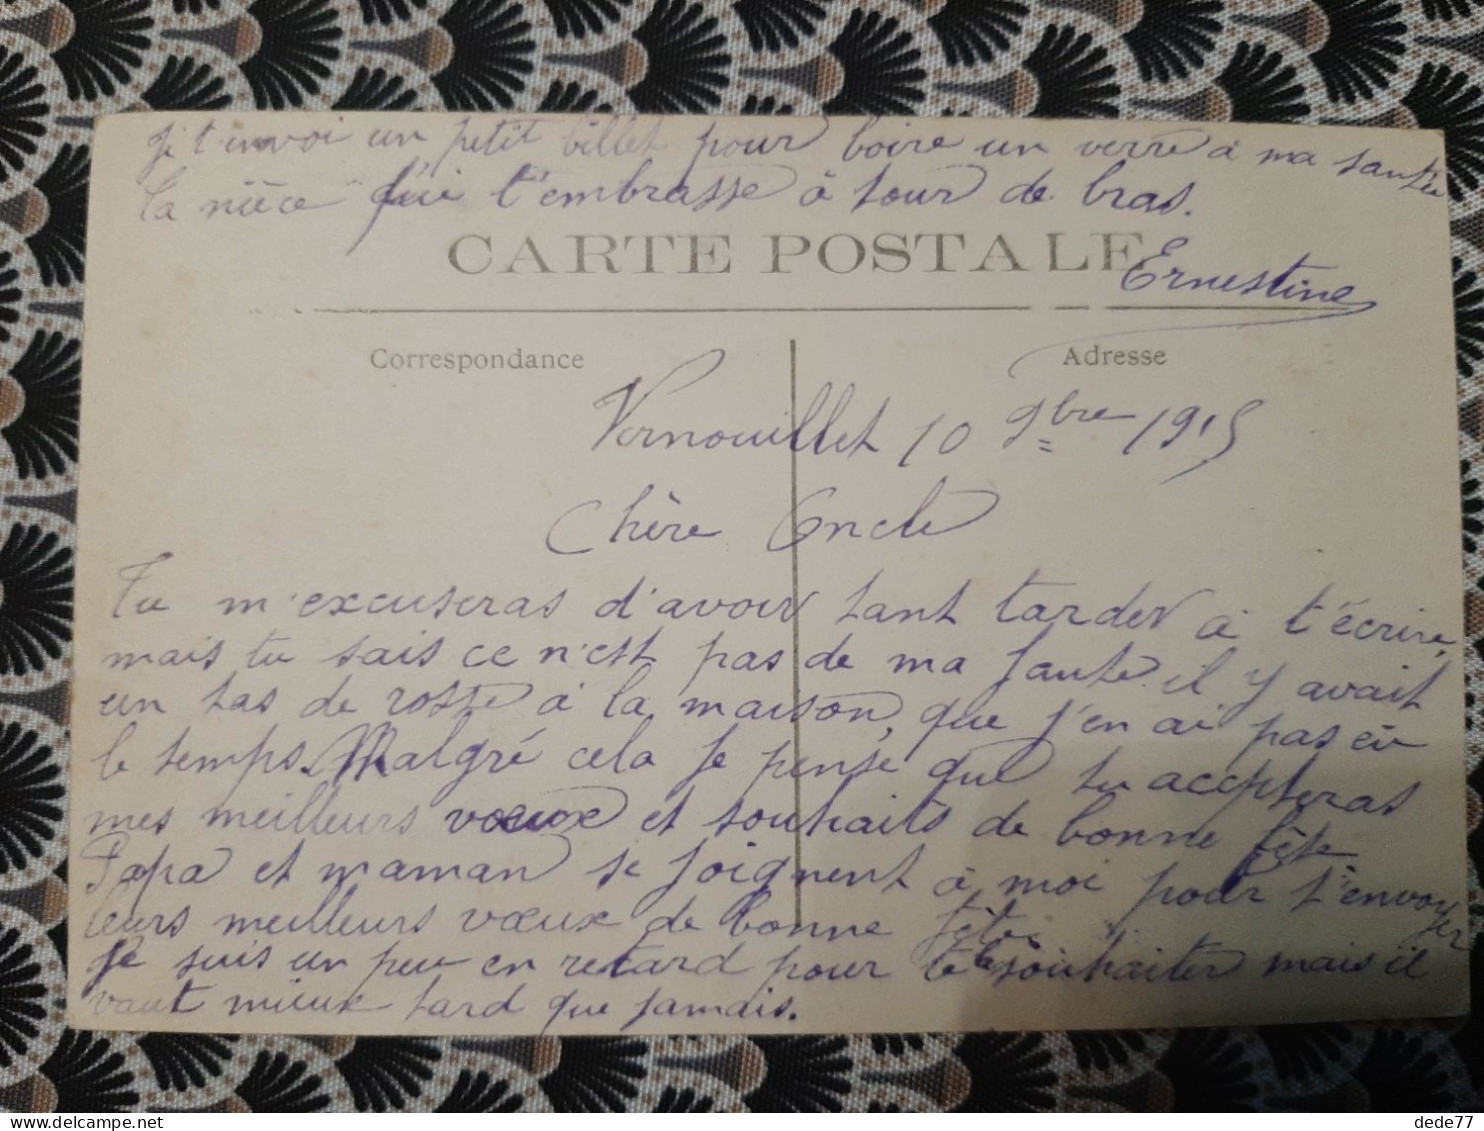 Je t'envoi un petit billet pour boire un verre à ma santée
Ta nièce qui t'embrasse à tour de bras.
CARTE POSTALE
Ernestine
Correspondance
Adresse
Vernouillet 10 9bre 1915
Chère Oncle
Tu m'excuseras d'avoir tant tarder à t'écrire,
mais tu sais ce n'est pas de ma faute il y avait
un tas de roste à la maison, que j'en ai pas eû
le temps. Malgré cela je pense que tu accepteras
mes meilleurs voeux et souhaits de bonne fête.
Papa et maman se joignent à moi pour t'envoyer
leurs meilleurs voeux de bonne fête.
Je suis un peu en retard pour te le souhaiter mais il
vaut mieux tard que jamais.
dede77